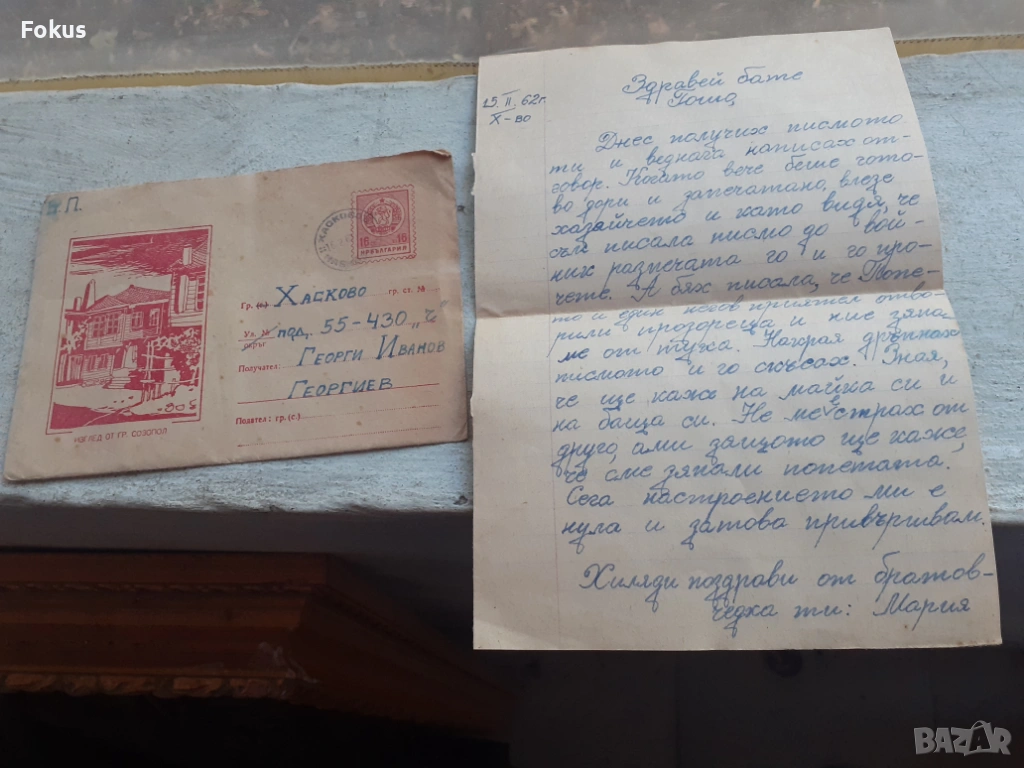 Fokus
П.
16 16
НР БЪЛГАРИЯ
Гр. (с.) ХАСКОВО гр. ст. №
Ул. № под. 55-430 „Ч"
окръг
Получател: ГЕОРГИ ИВАНОВ
ГЕОРГИЕВ
Подател: гр. (с.)
ИЗГЛЕД ОТ ГР. СОЗОПОЛ
15.II.62г.
Х-во
Здравей бате
Гоша
Днес получих писмото
ти и веднага написах от-
говор. Когато вече беше гото-
во дори и запечатано, влезе
хазяйчето и като видя, че
съм писала писмо до вой-
ник разпечата го и го про-
чете. А бях писала, че Попе-
то и един негов приятел отво-
рили прозореца и ние зяпа-
ме от тука. Накрая дръпнах
писмото и го скъсах. Зная,
че ще каже на майка си и
на баща си. Не ме е страх от
друго, ами защото ще каже,
че сме зяпали попетата.
Сега настроението ми е
нула и затова привършвам.
Хиляди поздрави от братов-
чедка ти: Мария
BAZAR